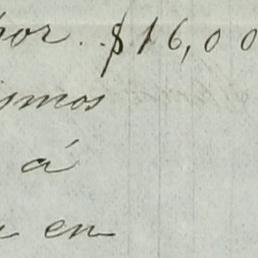 por. . $16,00
ismos
á
en